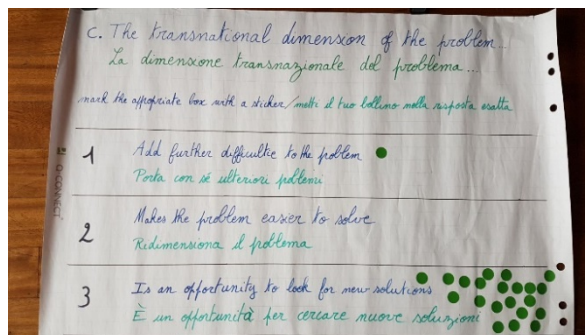 C. The transnational dimension of the problem...
La dimensione transnazionale del problema...
mark the appropriate box with a sticker/metti il tuo bollino nella risposta esatta
1 Add further difficultie to the problem
Porta con sé ulteriori problemi
2 Makes the problem easier to solve
Ridimensiona il problema
3 Is an opportunity to look for new solutions
È un opportunità per cercare nuove soluzioni
Q-CONNECT